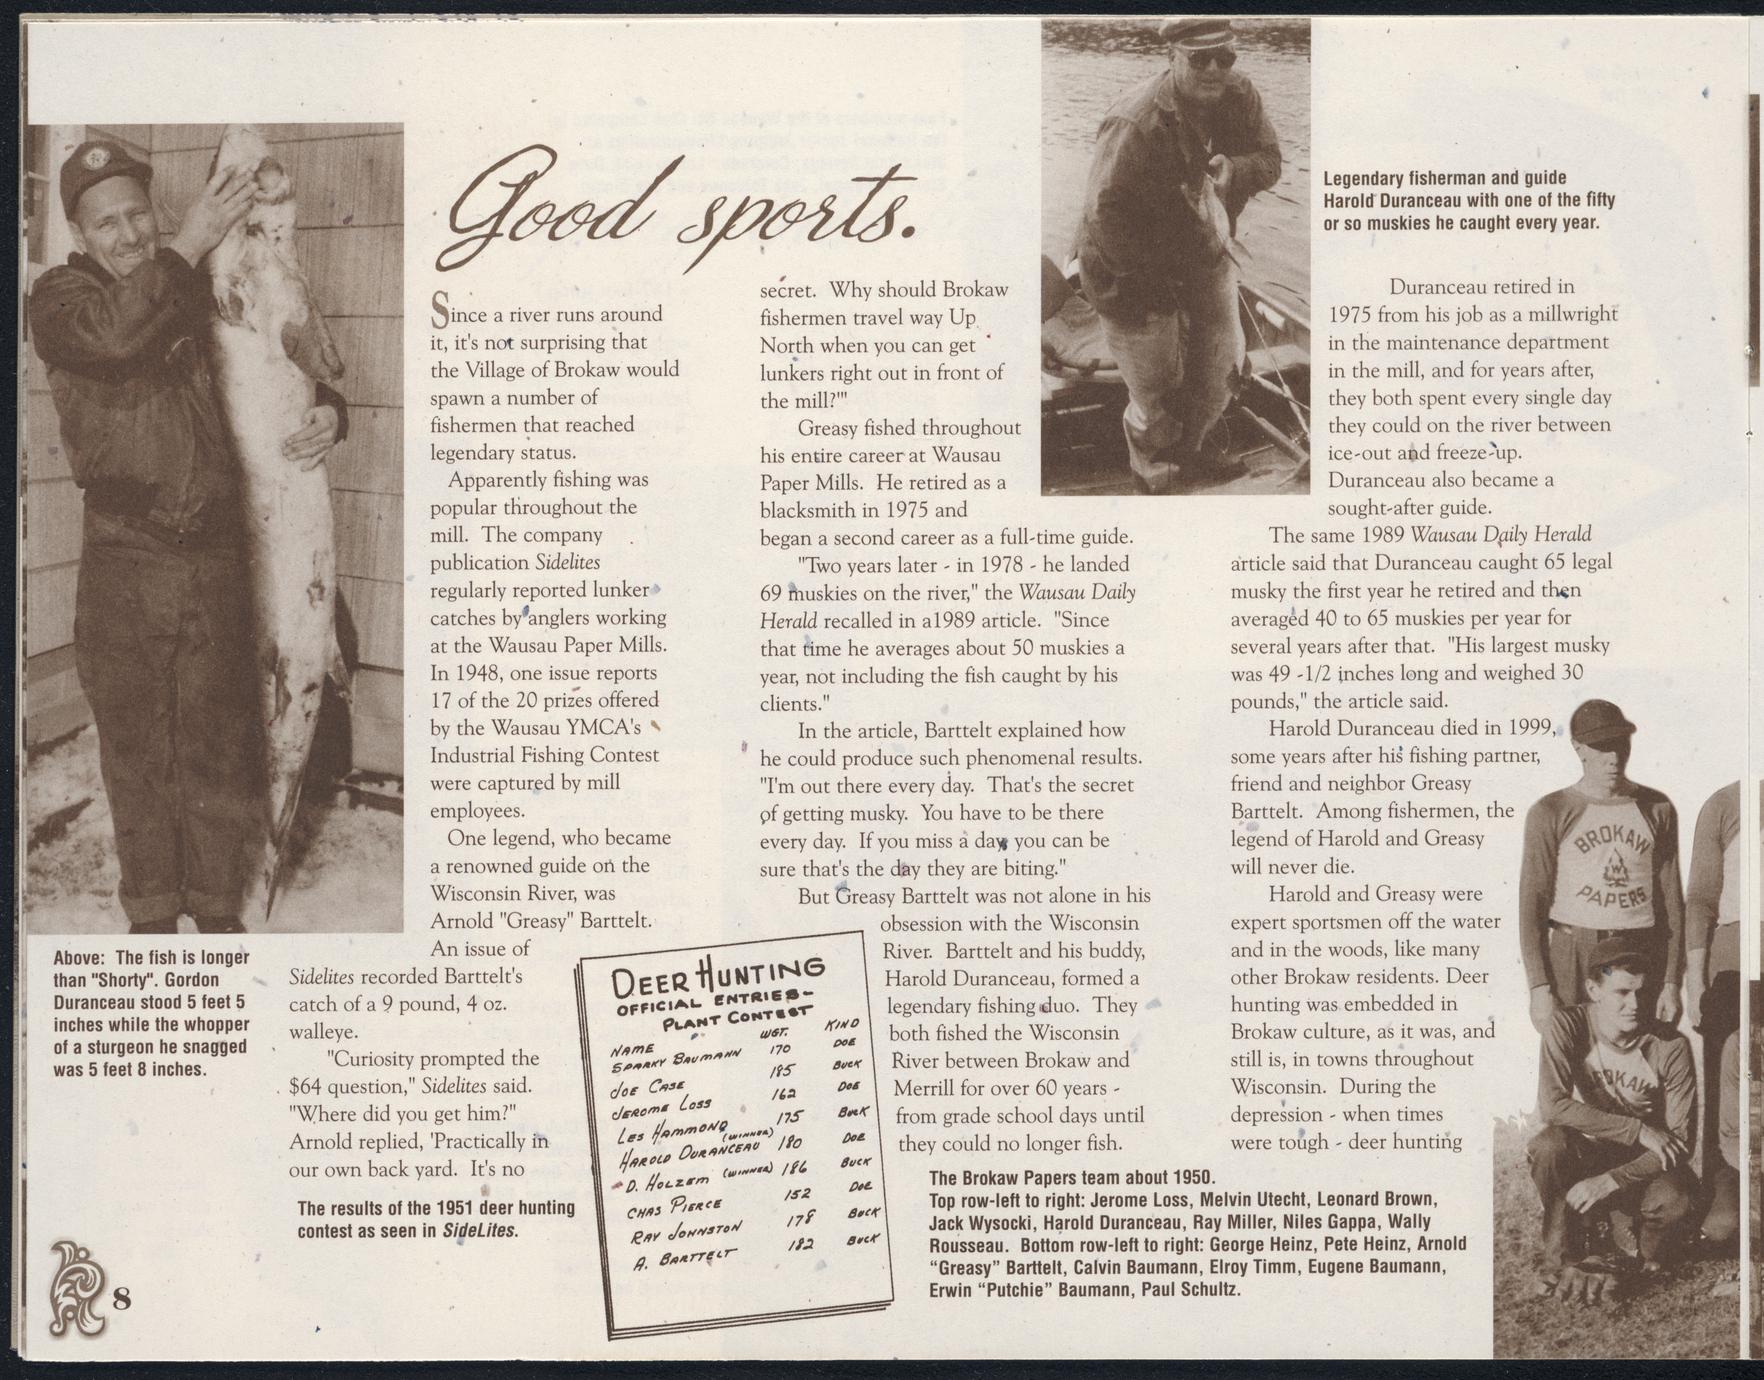 Good sports.
Since a river runs around
it, it's not surprising that
the Village of Brokaw would
spawn a number of
fishermen that reached
legendary status.
Apparently fishing was
popular throughout the
mill. The company
publication Sidelites
regularly reported lunker
catches by anglers working
at the Wausau Paper Mills.
In 1948, one issue reports
17 of the 20 prizes offered
by the Wausau YMCA's
Industrial Fishing Contest
were captured by mill
employees.
One legend, who became
a renowned guide on the
Wisconsin River, was
Arnold "Greasy" Barttelt.
An issue of
Sidelites recorded Barttelt's
catch of a 9 pound, 4 oz.
walleye.
"Curiosity prompted the
$64 question," Sidelites said.
"Where did you get him?"
Arnold replied, 'Practically in
our own back yard. It's no
secret. Why should Brokaw
fishermen travel way Up
North when you can get
lunkers right out in front of
the mill?'"
Greasy fished throughout
his entire career at Wausau
Paper Mills. He retired as a
blacksmith in 1975 and
began a second career as a full-time guide.
"Two years later - in 1978 - he landed
69 muskies on the river," the Wausau Daily
Herald recalled in a1989 article. "Since
that time he averages about 50 muskies a
year, not including the fish caught by his
clients."
In the article, Barttelt explained how
he could produce such phenomenal results.
"I'm out there every day. That's the secret
of getting musky. You have to be there
every day. If you miss a day you can be
sure that's the day they are biting."
But Greasy Barttelt was not alone in his
obsession with the Wisconsin
River. Barttelt and his buddy,
Harold Duranceau, formed a
legendary fishing duo. They
both fished the Wisconsin
River between Brokaw and
Merrill for over 60 years -
from grade school days until
they could no longer fish.
Legendary fisherman and guide
Harold Duranceau with one of the fifty
or so muskies he caught every year.
Duranceau retired in
1975 from his job as a millwright
in the maintenance department
in the mill, and for years after,
they both spent every single day
they could on the river between
ice-out and freeze-up.
Duranceau also became a
sought-after guide.
The same 1989 Wausau Daily Herald
article said that Duranceau caught 65 legal
musky the first year he retired and then
averaged 40 to 65 muskies per year for
several years after that. "His largest musky
was 49 -1/2 inches long and weighed 30
pounds," the article said.
Harold Duranceau died in 1999,
some years after his fishing partner,
friend and neighbor Greasy
Barttelt. Among fishermen, the
legend of Harold and Greasy
will never die.
Harold and Greasy were
expert sportsmen off the water
and in the woods, like many
other Brokaw residents. Deer
hunting was embedded in
Brokaw culture, as it was, and
still is, in towns throughout
Wisconsin. During the
depression - when times
were tough - deer hunting
Above: The fish is longer
than "Shorty". Gordon
Duranceau stood 5 feet 5
inches while the whopper
of a sturgeon he snagged
was 5 feet 8 inches.
The results of the 1951 deer hunting
contest as seen in SideLites.
DEER HUNTING
OFFICIAL ENTRIES-
PLANT CONTEST
NAME WGT. KIND
SPARKY BAUMANN 170 DOE
JOE CASE 185 BUCK
JEROME LOSS 162 DOE
LES HAMMOND (WINNER) 175 BUCK
HAROLD DURANCEAU 180 DOE
D. HOLZEM (WINNER) 186 BUCK
CHAS PIERCE 152 DOE
RAY JOHNSTON 178 BUCK
A. BARTTELT 182 BUCK
The Brokaw Papers team about 1950.
Top row-left to right: Jerome Loss, Melvin Utecht, Leonard Brown,
Jack Wysocki, Harold Duranceau, Ray Miller, Niles Gappa, Wally
Rousseau. Bottom row-left to right: George Heinz, Pete Heinz, Arnold
“Greasy” Barttelt, Calvin Baumann, Elroy Timm, Eugene Baumann,
Erwin “Putchie” Baumann, Paul Schultz.
BROKAW
W
PAPERS
8